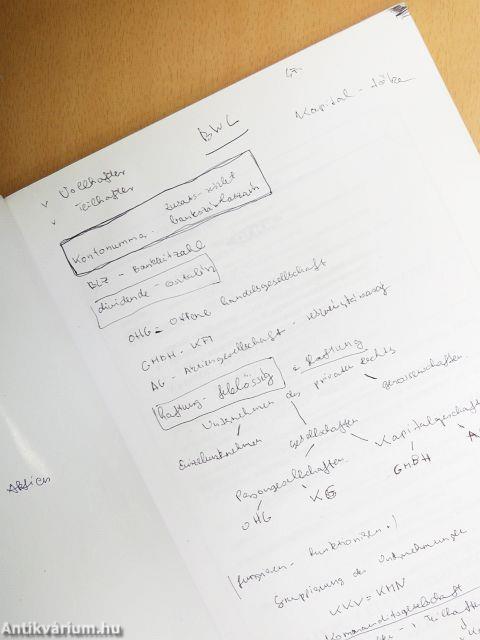 47.
Kapital - tőke
BWL
v Vollhafter
v Teilhafter
Kontonumma -
bankszámlaszám
BLZ - Bankleitzahl
dividende - osztalék
OHG = Offene handelsgesellschaft
GMBH - KFT
AG - Aktiengesellschaft - részvénytársaság
haftung - felelősség
e Haftung
Unternehmen des private rechts
Einzelunternehmen
Gesellschaften
genossenschaften
Personengesellschaften
Kapitalgeschaft
OHG
KG
GMBH
A
Aktien
(fungieren - funktionieren.)
Gruppierung des Unternehmungen
KKV = KHN
Kommanditgesellschaft
1 Teilhafte
Antikvárium.hu